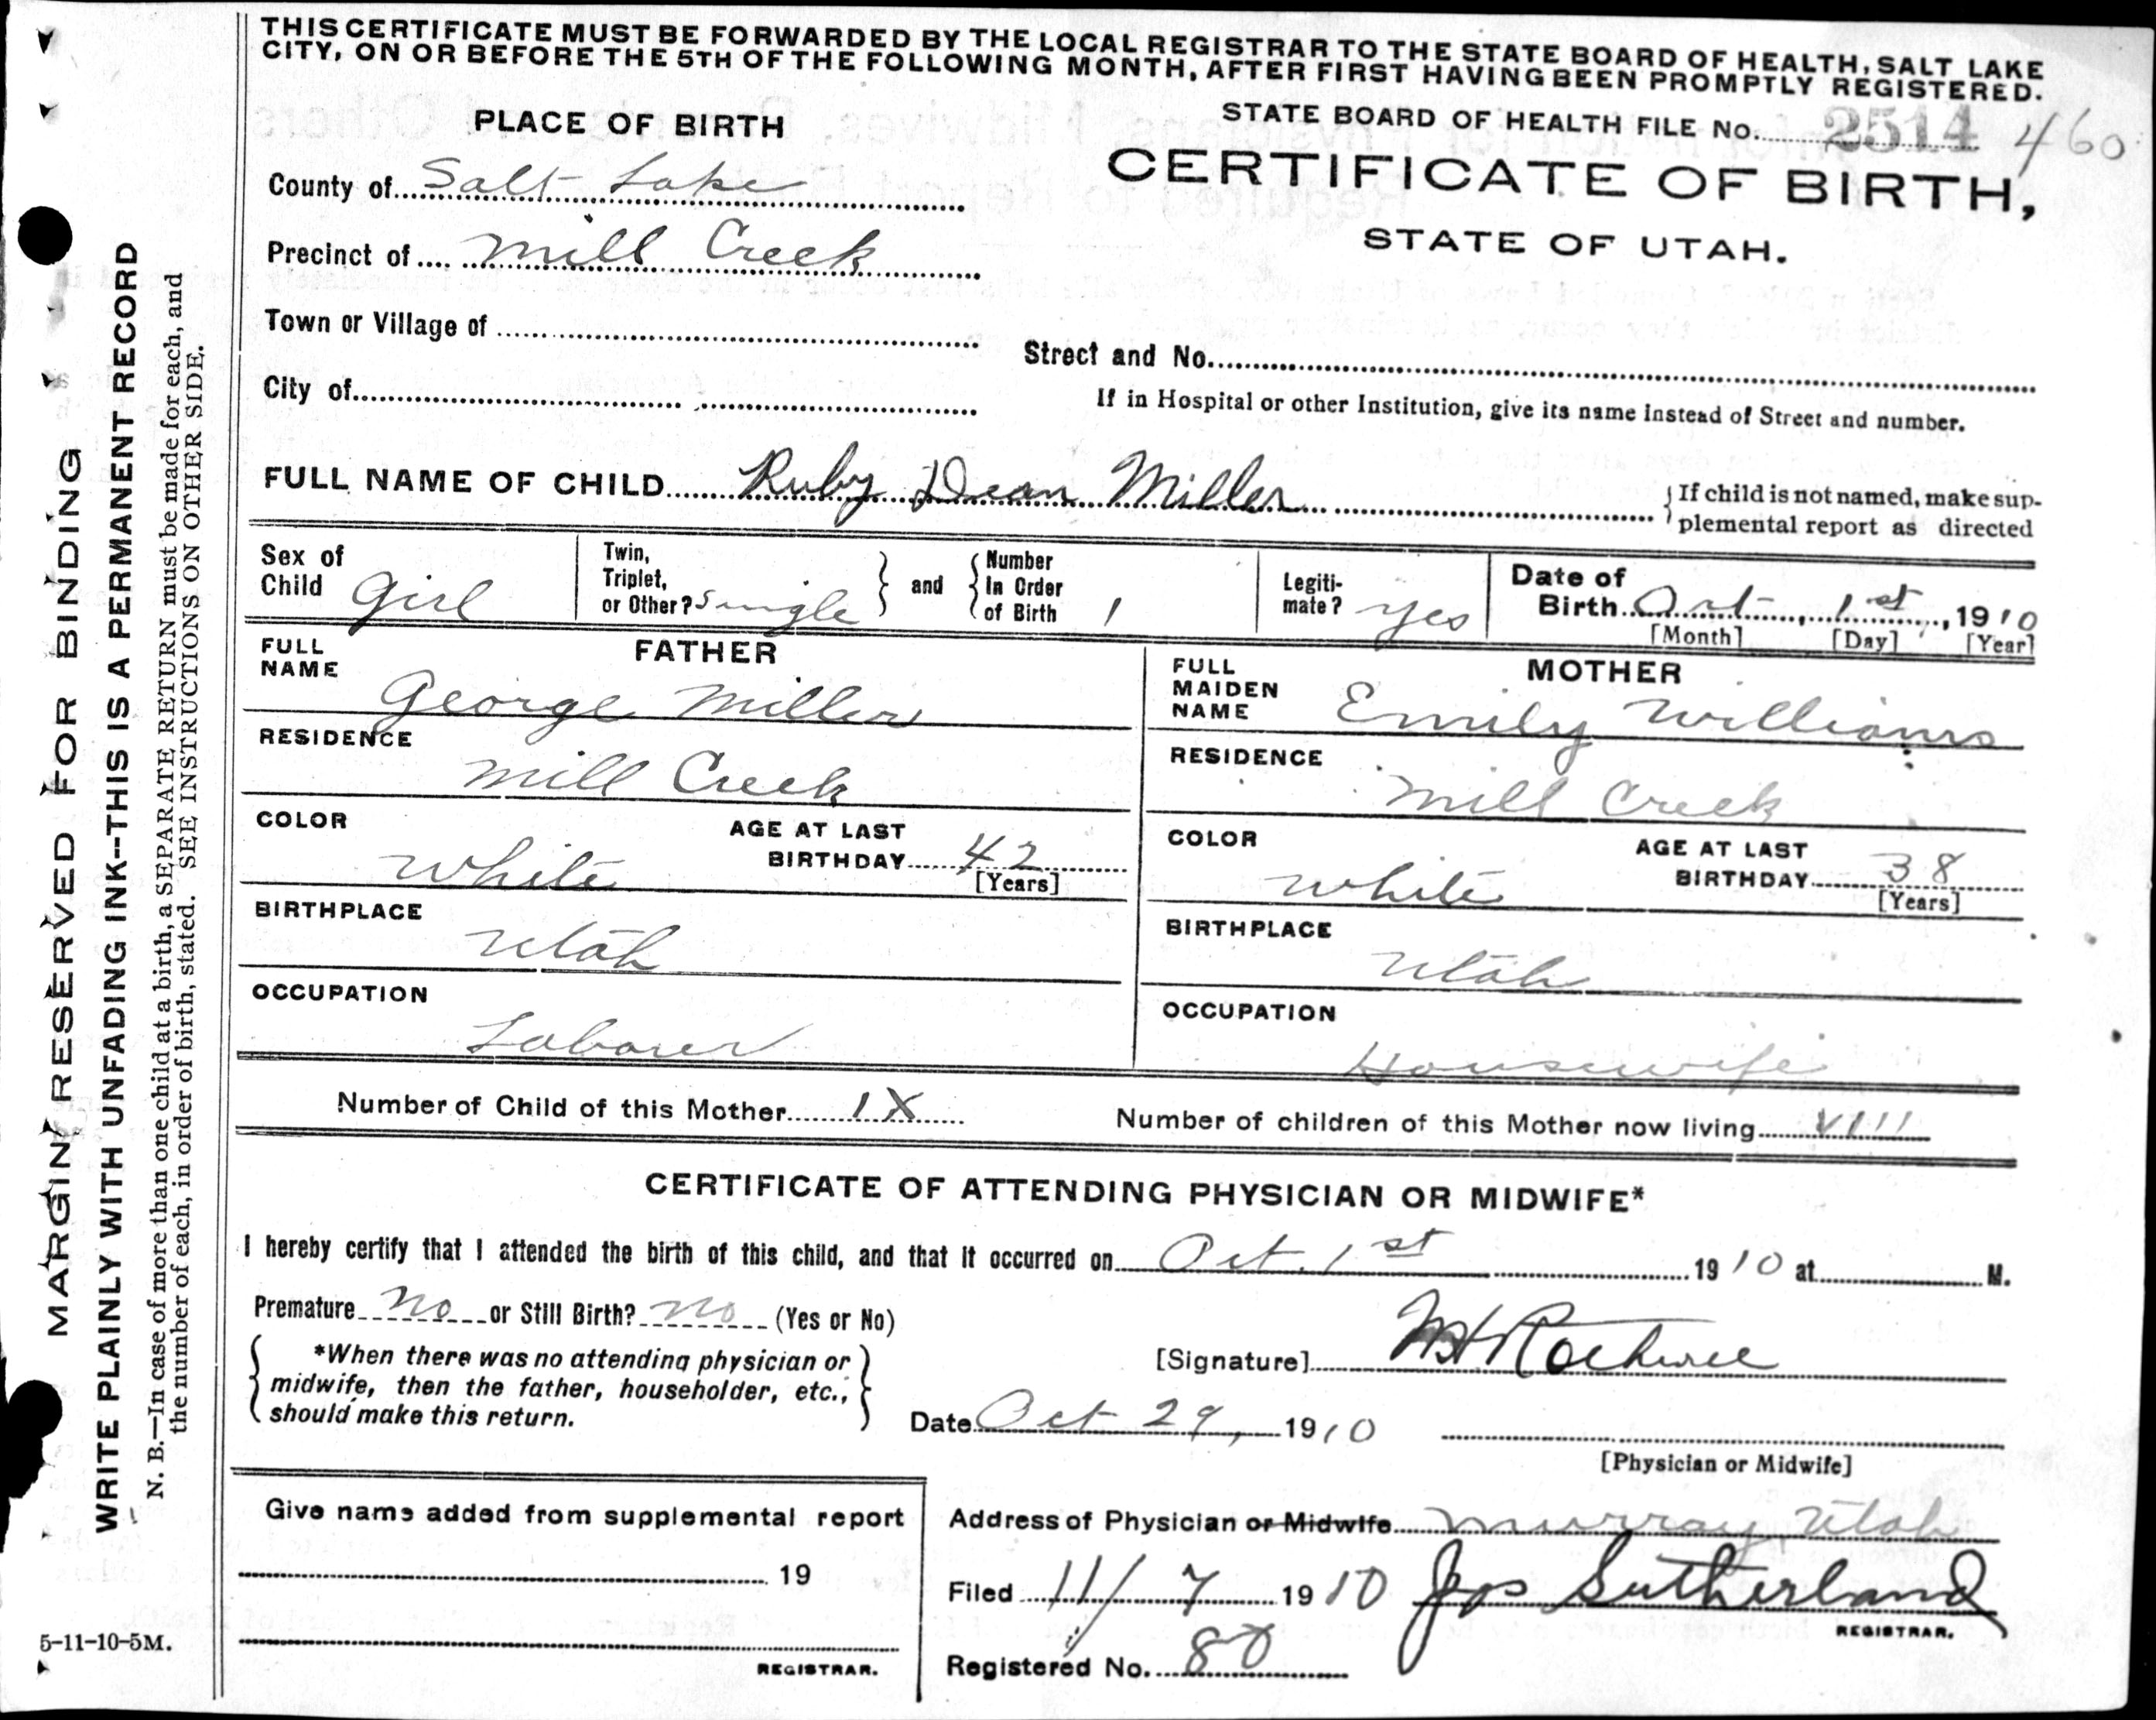 THIS CERTIFICATE MUST BE FORWARDED BY THE LOCAL REGISTRAR TO THE STATE BOARD OF HEALTH, SALT LAKE
CITY, ON OR BEFORE THE 5TH OF THE FOLLOWING MONTH, AFTER FIRST HAVING BEEN PROMPTLY REGISTERED.
STATE BOARD OF HEALTH FILE No. 2514 460
PLACE OF BIRTH
CERTIFICATE OF BIRTH,
STATE OF UTAH.
County of Salt Lake
Precinct of Mill Creek
Town or Village of
Street and No.
City of
If in Hospital or other Institution, give its name instead of Street and number.
FULL NAME OF CHILD Ruby Dean Miller
If child is not named, make sup-
plemental report as directed
Sex of
Child Girl
Twin,
Triplet,
or Other? Single
and
Number
In Order
of Birth 1
Legiti-
mate? yes
Date of
Birth Oct 1st, 1910
[Month] [Day] [Year]
FATHER
FULL
NAME
George Miller
RESIDENCE
Mill Creek
COLOR
White
AGE AT LAST
BIRTHDAY 42
[Years]
BIRTHPLACE
Utah
OCCUPATION
Laborer
MOTHER
FULL
MAIDEN
NAME
Emily Williams
RESIDENCE
Mill Creek
COLOR
White
AGE AT LAST
BIRTHDAY 38
[Years]
BIRTHPLACE
Utah
OCCUPATION
Housewife
Number of Child of this Mother IX
Number of children of this Mother now living VIII
CERTIFICATE OF ATTENDING PHYSICIAN OR MIDWIFE*
I hereby certify that I attended the birth of this child, and that it occurred on Oct. 1st 1910 at M.
Premature no or Still Birth? no (Yes or No)
*When there was no attending physician or
midwife, then the father, householder, etc.,
should make this return.
[Signature]
Date Oct 29, 1910
[Physician or Midwife]
Give name added from supplemental report
19
REGISTRAR.
Address of Physician or Midwife Murray Utah
Filed 11/7 1910 Jos Sutherland
REGISTRAR.
Registered No. 80
MARGIN RESERVED FOR BINDING
WRITE PLAINLY WITH UNFADING INK--THIS IS A PERMANENT RECORD
N. B.—In case of more than one child at a birth, a SEPARATE RETURN must be made for each, and
the number of each, in order of birth, stated. SEE INSTRUCTIONS ON OTHER SIDE.
5-11-10-5M.